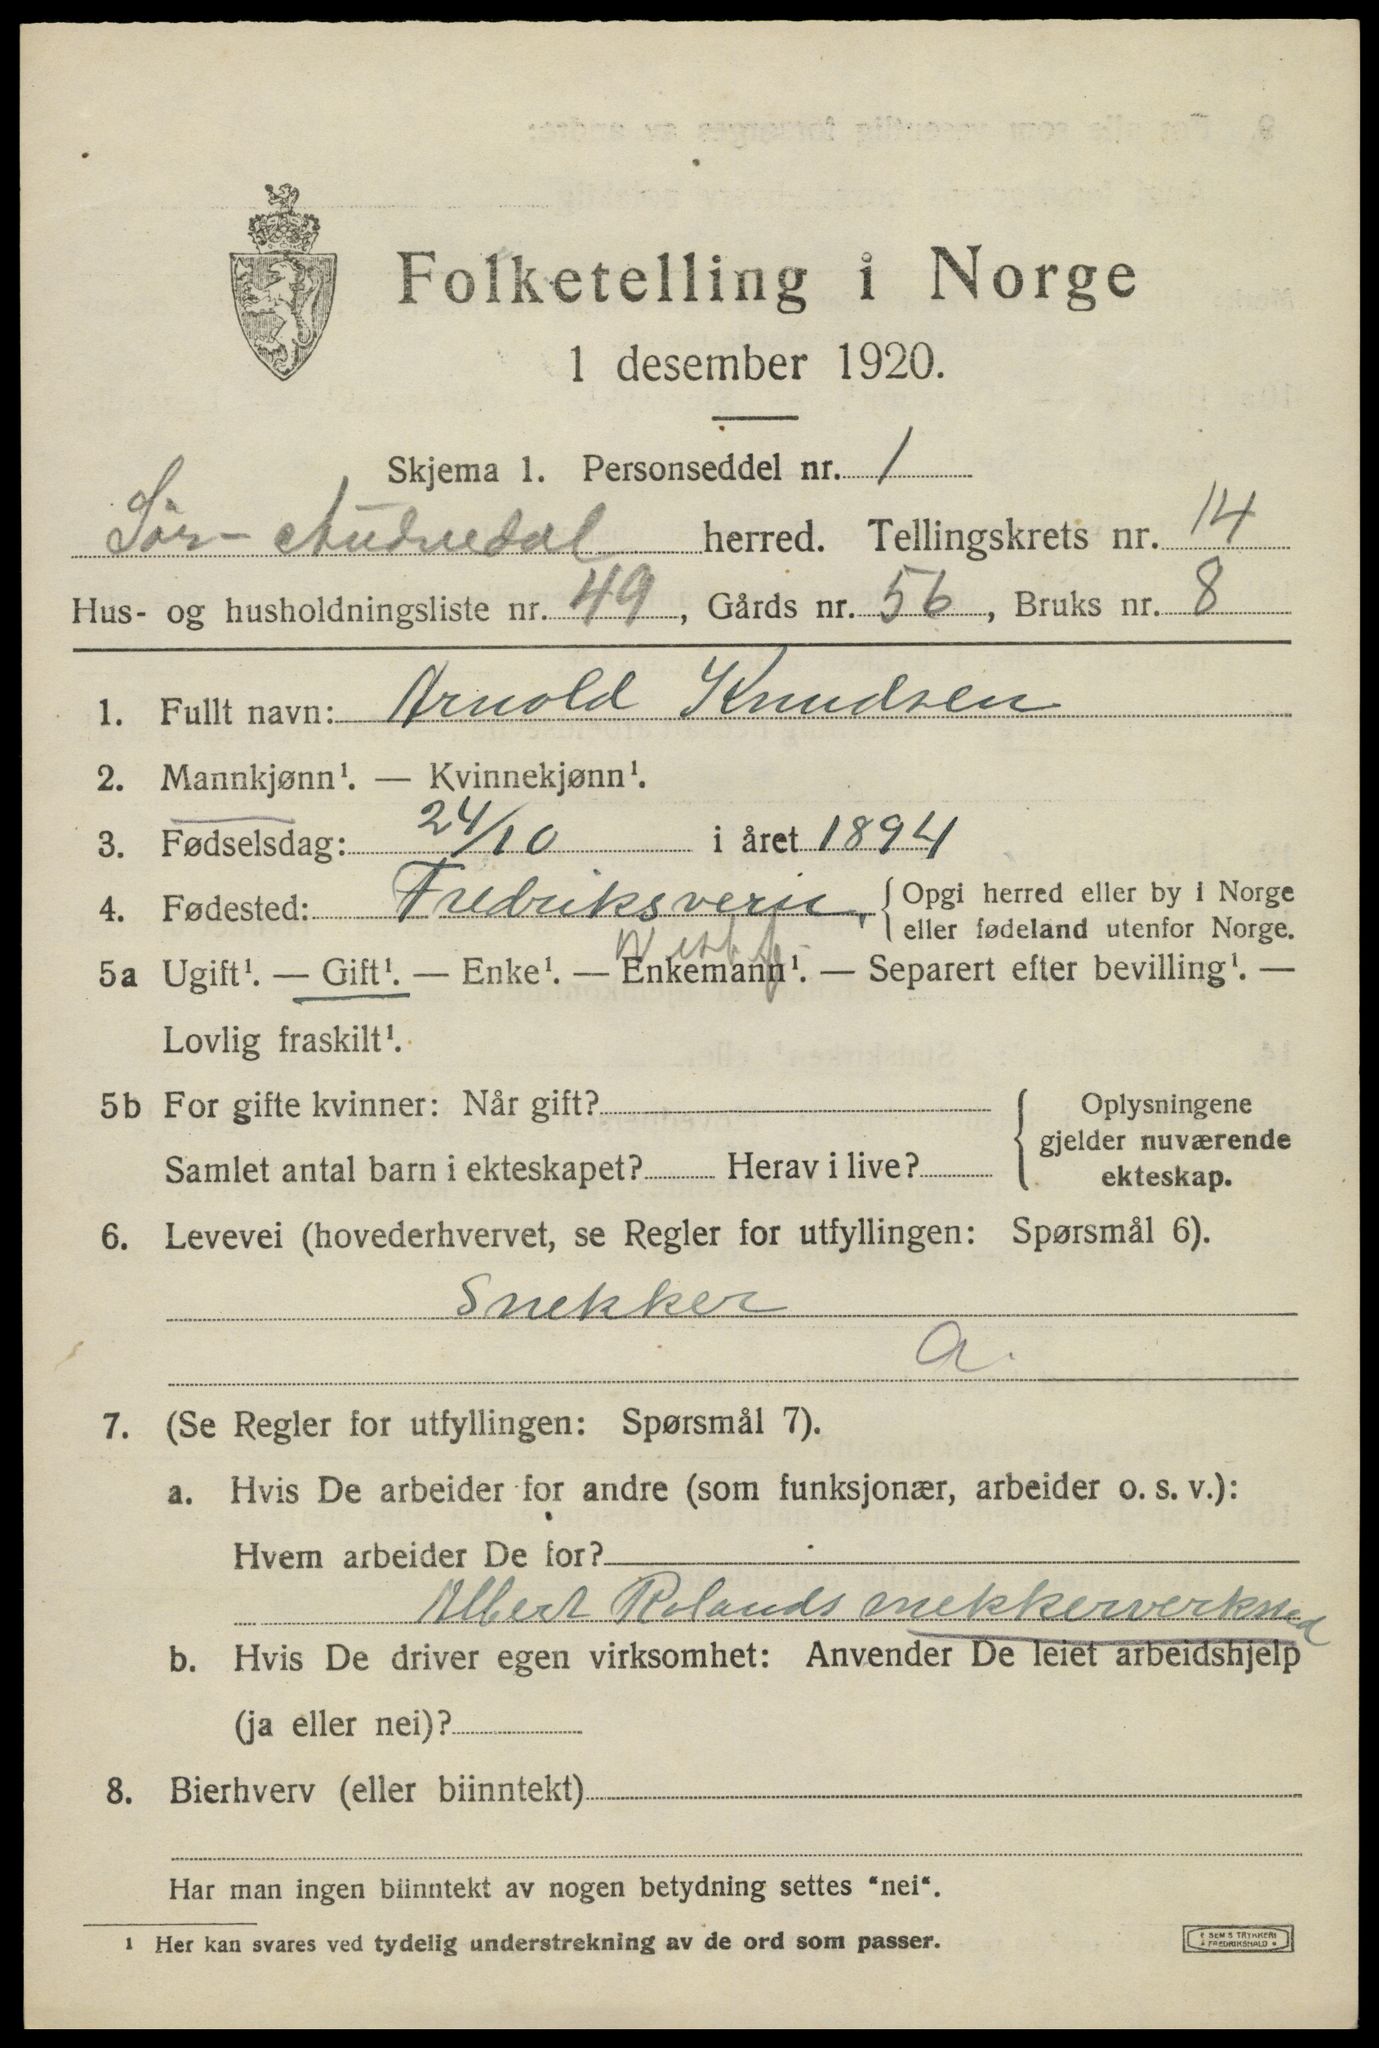 Folketelling i Norge
1 desember 1920.
Skjema 1. Personseddel nr. 1
Sør-Audnedal herred. Tellingskrets nr. 14
Hus- og husholdningsliste nr. 49, Gårds nr. 56, Bruks nr. 8
1. Fullt navn: Arnold Knudsen
2. Mannkjønn¹. — Kvinnekjønn¹.
3. Fødselsdag: 24/10 i året 1894
4. Fødested: Fredriksvern, { Opgi herred eller by i Norge
eller fødeland utenfor Norge.
Vestf.
5a Ugift¹. — Gift¹. — Enke¹. — Enkemann¹. — Separert efter bevilling¹. —
Lovlig fraskilt¹.
5b For gifte kvinner: Når gift? { Oplysningene
gjelder nuværende
Samlet antal barn i ekteskapet? Herav i live? ekteskap.
6. Levevei (hovederhvervet, se Regler for utfyllingen: Spørsmål 6).
Snekker
a.
7. (Se Regler for utfyllingen: Spørsmål 7).
a. Hvis De arbeider for andre (som funksjonær, arbeider o. s. v.):
Hvem arbeider De for?
Albert Rolands snekkerverksted
b. Hvis De driver egen virksomhet: Anvender De leiet arbeidshjelp
(ja eller nei)?
8. Bierhverv (eller biinntekt)
Har man ingen biinntekt av nogen betydning settes "nei".
¹ Her kan svares ved tydelig understrekning av de ord som passer.
SEM'S TRYKKERI
FREDRIKSHALD